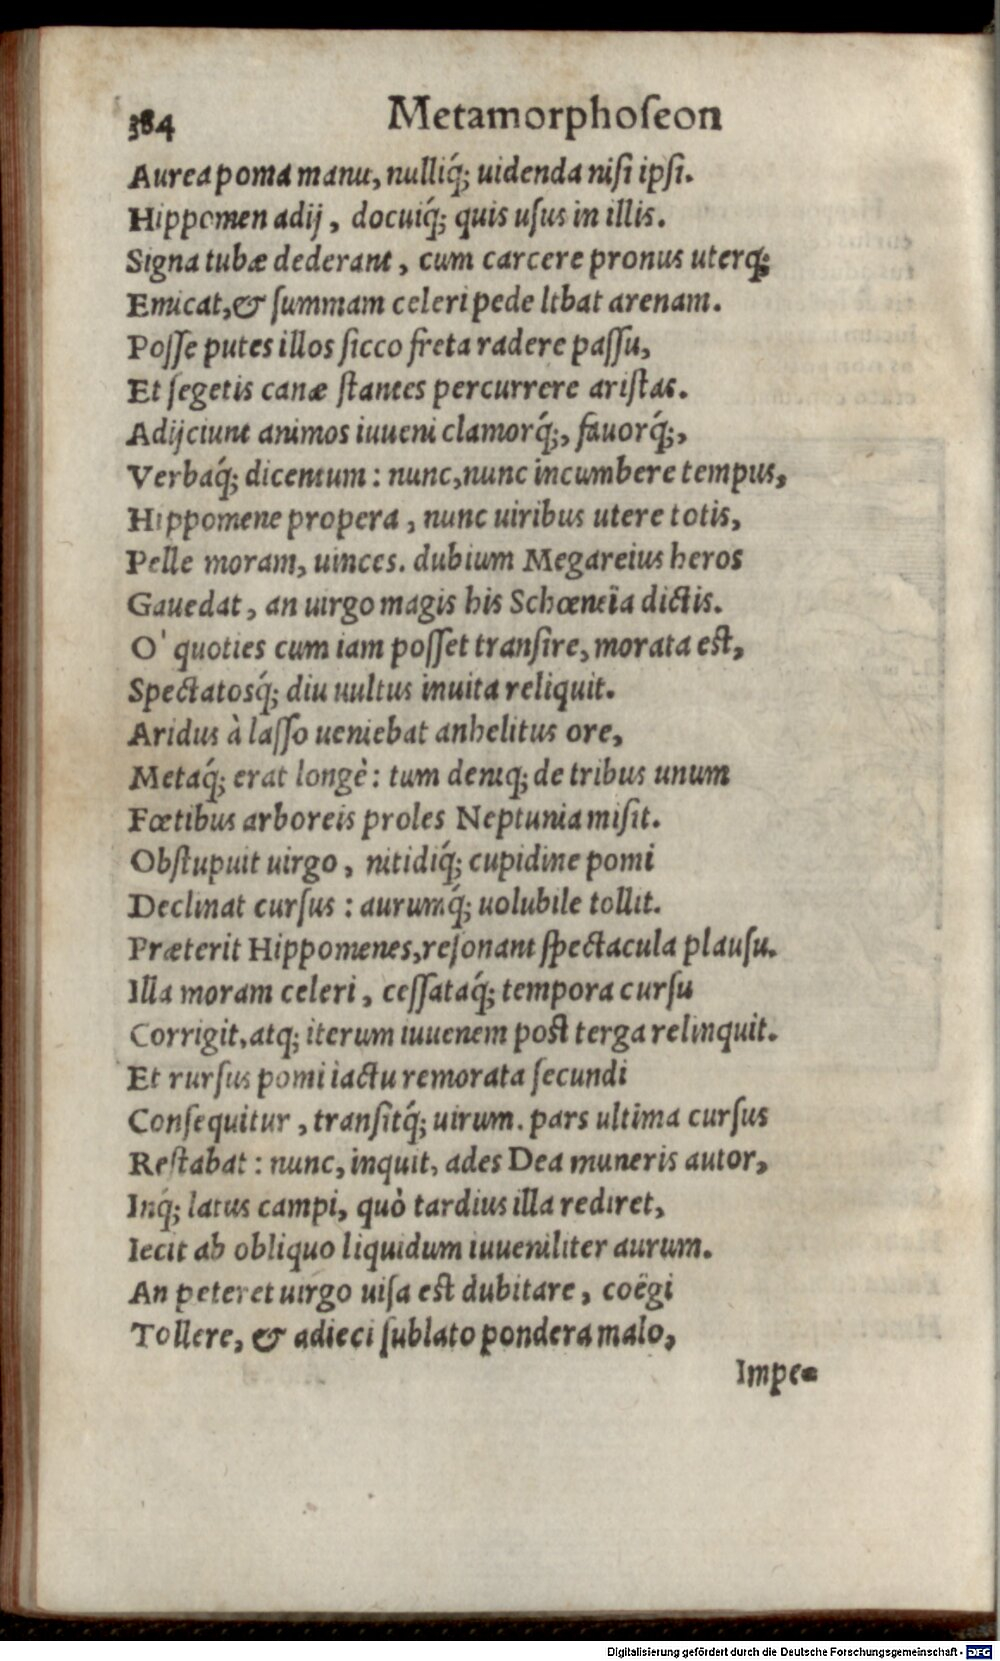 384 Metamorphoſeon
Aurea poma manu, nulliq́; uidenda niſi ipſi.
Hippomen adij, docuiq́; quis uſus in illis.
Signa tubæ dederant, cum carcere pronus uterq;
Emicat, & ſummam celeri pede libat arenam.
Poſſe putes illos ſicco freta radere paſſu,
Et ſegetis canæ ſtantes percurrere ariſtas.
Adijciunt animos iuueni clamorq́;, fauorq́;,
Verbaq́; dicentum: nunc, nunc incumbere tempus,
Hippomene propera, nunc uiribus utere totis,
Pelle moram, uinces. dubium Megareius heros
Gauedat, an uirgo magis his Schœneïa dictis.
O' quoties cum iam poſſet tranſire, morata eſt,
Spectatosq́; diu uultus inuita reliquit.
Aridus à laſſo ueniebat anhelitus ore,
Metaq́; erat longè: tum deniq; de tribus unum
Fœtibus arboreis proles Neptunia miſit.
Obſtupuit uirgo, nitidiq́; cupidine pomi
Declinat curſus: aurumq́; uolubile tollit.
Præterit Hippomenes, reſonant ſpectacula plauſu.
Illa moram celeri, ceſſataq́; tempora curſu
Corrigit, atq; iterum iuuenem poſt terga relinquit.
Et rurſus pomi iactu remorata ſecundi
Conſequitur, tranſitq́; uirum. pars ultima curſus
Reſtabat: nunc, inquit, ades Dea muneris autor,
Inq́; latus campi, quò tardius illa rediret,
Iecit ab obliquo liquidum iuueniliter aurum.
An peteret uirgo uiſa eſt dubitare, coëgi
Tollere, & adieci ſublato pondera malo,
Impe-
Digitalisierung gefördert durch die Deutsche Forschungsgemeinschaft - DFG